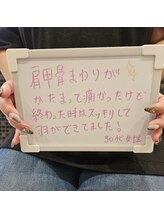 肩甲骨まわりが
かたまって痛かったけど
終わった時はスッキリして
羽ができてました!
30代 女性